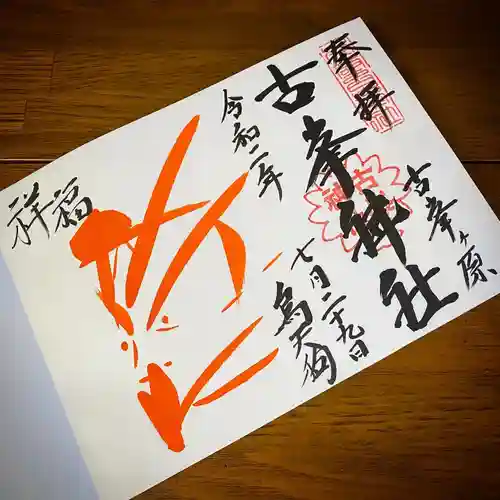 奉拝
古峯ヶ原
古峯神社
令和二年
七月二十九日
烏天狗
祥福